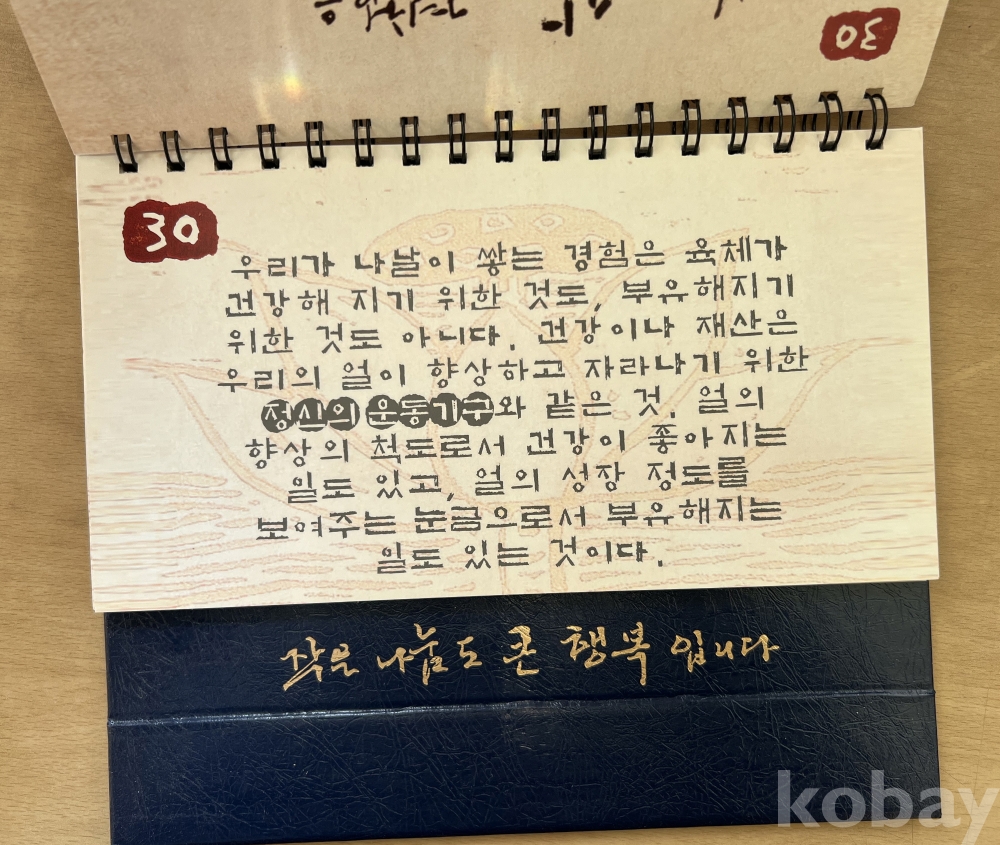 30
30
우리가 나날이 쌓는 경험은 육체가
건강해 지기 위한 것도, 부유해지기
위한 것도 아니다. 건강이나 재산은
우리의 얼이 향상하고 자라나기 위한
정신의 운동기구와 같은 것. 얼의
향상의 척도로서 건강이 좋아지는
일도 있고, 얼의 성장 정도를
보여주는 눈금으로서 부유해지는
일도 있는 것이다.
작은 나눔도 큰 행복입니다
kobay